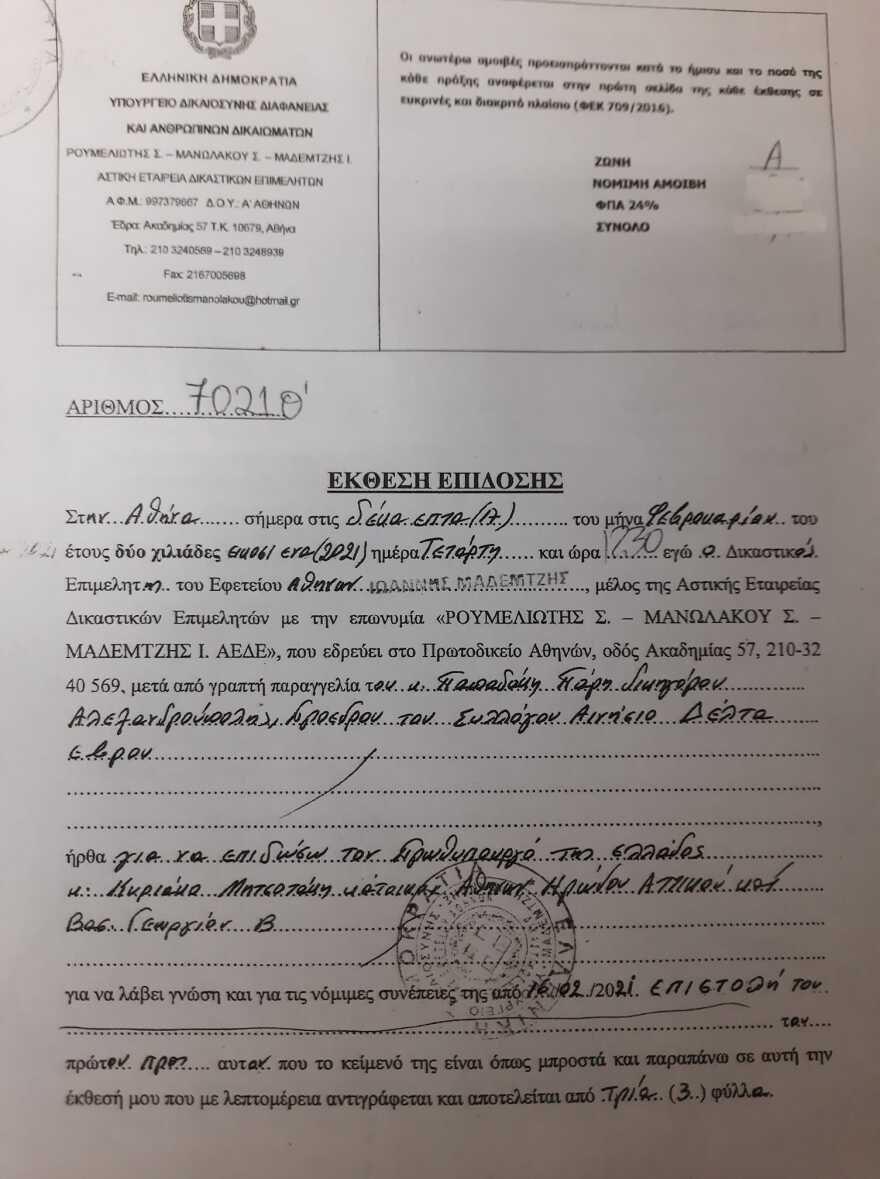 ΕΛΛΗΝΙΚΗ ΔΗΜΟΚΡΑΤΙΑ
ΥΠΟΥΡΓΕΙΟ ΔΙΚΑΙΟΣΥΝΗΣ ΔΙΑΦΑΝΕΙΑΣ
ΚΑΙ ΑΝΘΡΩΠΙΝΩΝ ΔΙΚΑΙΩΜΑΤΩΝ
ΡΟΥΜΕΛΙΩΤΗΣ Σ. – ΜΑΝΩΛΑΚΟΥ Σ. – ΜΑΔΕΜΤΖΗΣ Ι.
ΑΣΤΙΚΗ ΕΤΑΙΡΕΙΑ ΔΙΚΑΣΤΙΚΩΝ ΕΠΙΜΕΛΗΤΩΝ
Α.Φ.Μ.: 997379667 Δ.Ο.Υ.: Α' ΑΘΗΝΩΝ
Έδρα: Ακαδημίας 57 Τ.Κ. 10679, Αθήνα
Τηλ.: 210 3240569 – 210 3248939
Fax: 2167005698
E-mail: roumeliotismanolakou@hotmail.gr
Οι ανωτέρω αμοιβές προεισπράττονται κατά το ήμισυ και το ποσό της
κάθε πράξης αναφέρεται στην πρώτη σελίδα της κάθε έκθεσης σε
ευκρινές και διακριτό πλαίσιο (ΦΕΚ 709/2016).
ΖΩΝΗ Α
ΝΟΜΙΜΗ ΑΜΟΙΒΗ
ΦΠΑ 24%
ΣΥΝΟΛΟ
ΑΡΙΘΜΟΣ....7021Θ'
ΕΚΘΕΣΗ ΕΠΙΔΟΣΗΣ
Στην...Αθήνα....... σήμερα στις δέκα επτά (17).......... του μήνα Φεβρουαρίου.. του
έτους δύο χιλιάδες είκοσι ένα (2021) ημέρα Τετάρτη...... και ώρα 17.30 εγώ ο.. Δικαστικός
Επιμελητής.. του Εφετείου Αθηνών..ΙΩΑΝΝΗΣ ΜΑΔΕΜΤΖΗΣ.., μέλος της Αστικής Εταιρείας
Δικαστικών Επιμελητών με την επωνυμία «ΡΟΥΜΕΛΙΩΤΗΣ Σ. – ΜΑΝΩΛΑΚΟΥ Σ. –
ΜΑΔΕΜΤΖΗΣ Ι. ΑΕΔΕ», που εδρεύει στο Πρωτοδικείο Αθηνών, οδός Ακαδημίας 57, 210-32
40 569, μετά από γραπτή παραγγελία του κ. Παπαδάκη Πάρη δικηγόρου
Αλεξανδρούπολης, Προέδρου του Συλλόγου Αινήσιο Δέλτα
Έβρου
ήρθα για να επιδώσω τον Πρωθυπουργό της Ελλάδος
κ. Κυριάκο Μητσοτάκη κάτοικο Αθηνών Ηρώδου Αττικού και
Βασ. Γεωργίου Β
για να λάβει γνώση και για τις νόμιμες συνέπειες της από 16/02./2021. επιστολή του
του....
πρώτου. προς.... αυτον. που το κείμενό της είναι όπως μπροστά και παραπάνω σε αυτή την
έκθεσή μου που με λεπτομέρεια αντιγράφεται και αποτελείται από τρία.. (3..) φύλλα.